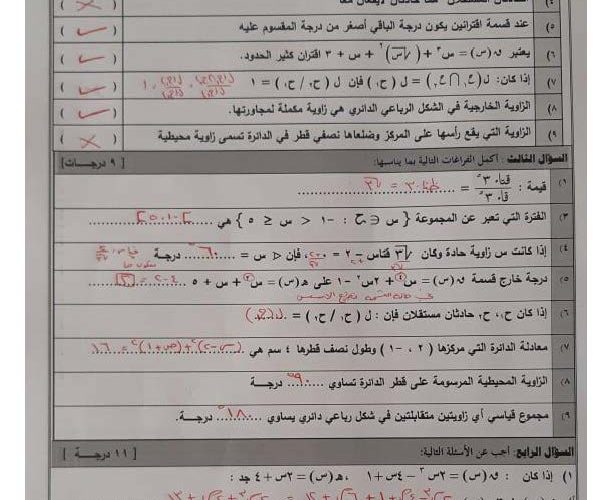 ٤) الحادثان المستقلان هما حادثان ( × )
٥) عند قسمة اقترانين يكون درجة الباقي أصغر من درجة المقسوم عليه ( ✓ )
٦) يعتبر ق(س) = س³ + (√س)² + س + ٣ اقتران كثير الحدود. ( ✓ )
٧) إذا كان: ل(ح₁ ∩ ح₂) = ل(ح₂) فإن ل(ح₁/ح₂) = ١ ( ✓ )
٨) الزاوية الخارجية في الشكل الرباعي الدائري هي زاوية مكملة لمجاورتها. ( ✓ )
٩) الزاوية التي يقع رأسها على المركز وضلعاها نصفي قطر في الدائرة تسمى زاوية محيطية ( × )
السؤال الثالث: أكمل الفراغات التالية بما يناسبها: [ ٩ درجات ]
١) قيمة: قتا٣٠° / قا٣٠° = ظتا٣٠ = √٣
٣) الفترة التي تعبر عن المجموعة { س ∈ ح : -١ < س ≤ ٥ } هي ]-١، ٥]
٤) إذا كانت س زاوية حادة وكان √٣ قتاس - ٢ = ٠، فإن > س = ٦٠° درجة
٥) درجة خارج قسمة ق(س) = س + ٢س² - ١ على هـ(س) = س + س + ٥ = ٤-٢ = ٢
٦) إذا كان ح₁، ح₂ حادثان مستقلان فإن: ل(ح₁/ح₂) = ل(ح₁)
٧) معادلة الدائرة التي مركزها (٢، -١) وطول نصف قطرها ٤ سم هي (س-٢)² + (ص+١)² = ١٦
٨) الزاوية المحيطية المرسومة على قطر الدائرة تساوي ٩٠° درجة
٩) مجموع قياسي أي زاويتين متقابلتين في شكل رباعي دائري يساوي ١٨٠° درجة.
السؤال الرابع: أجب عن الأسئلة التالية: [ ١١ درجة ]
١) إذا كان : ق(س) = ٢س³ - ٤س + ١ ، هـ(س) = ٢س + ٤ جد :